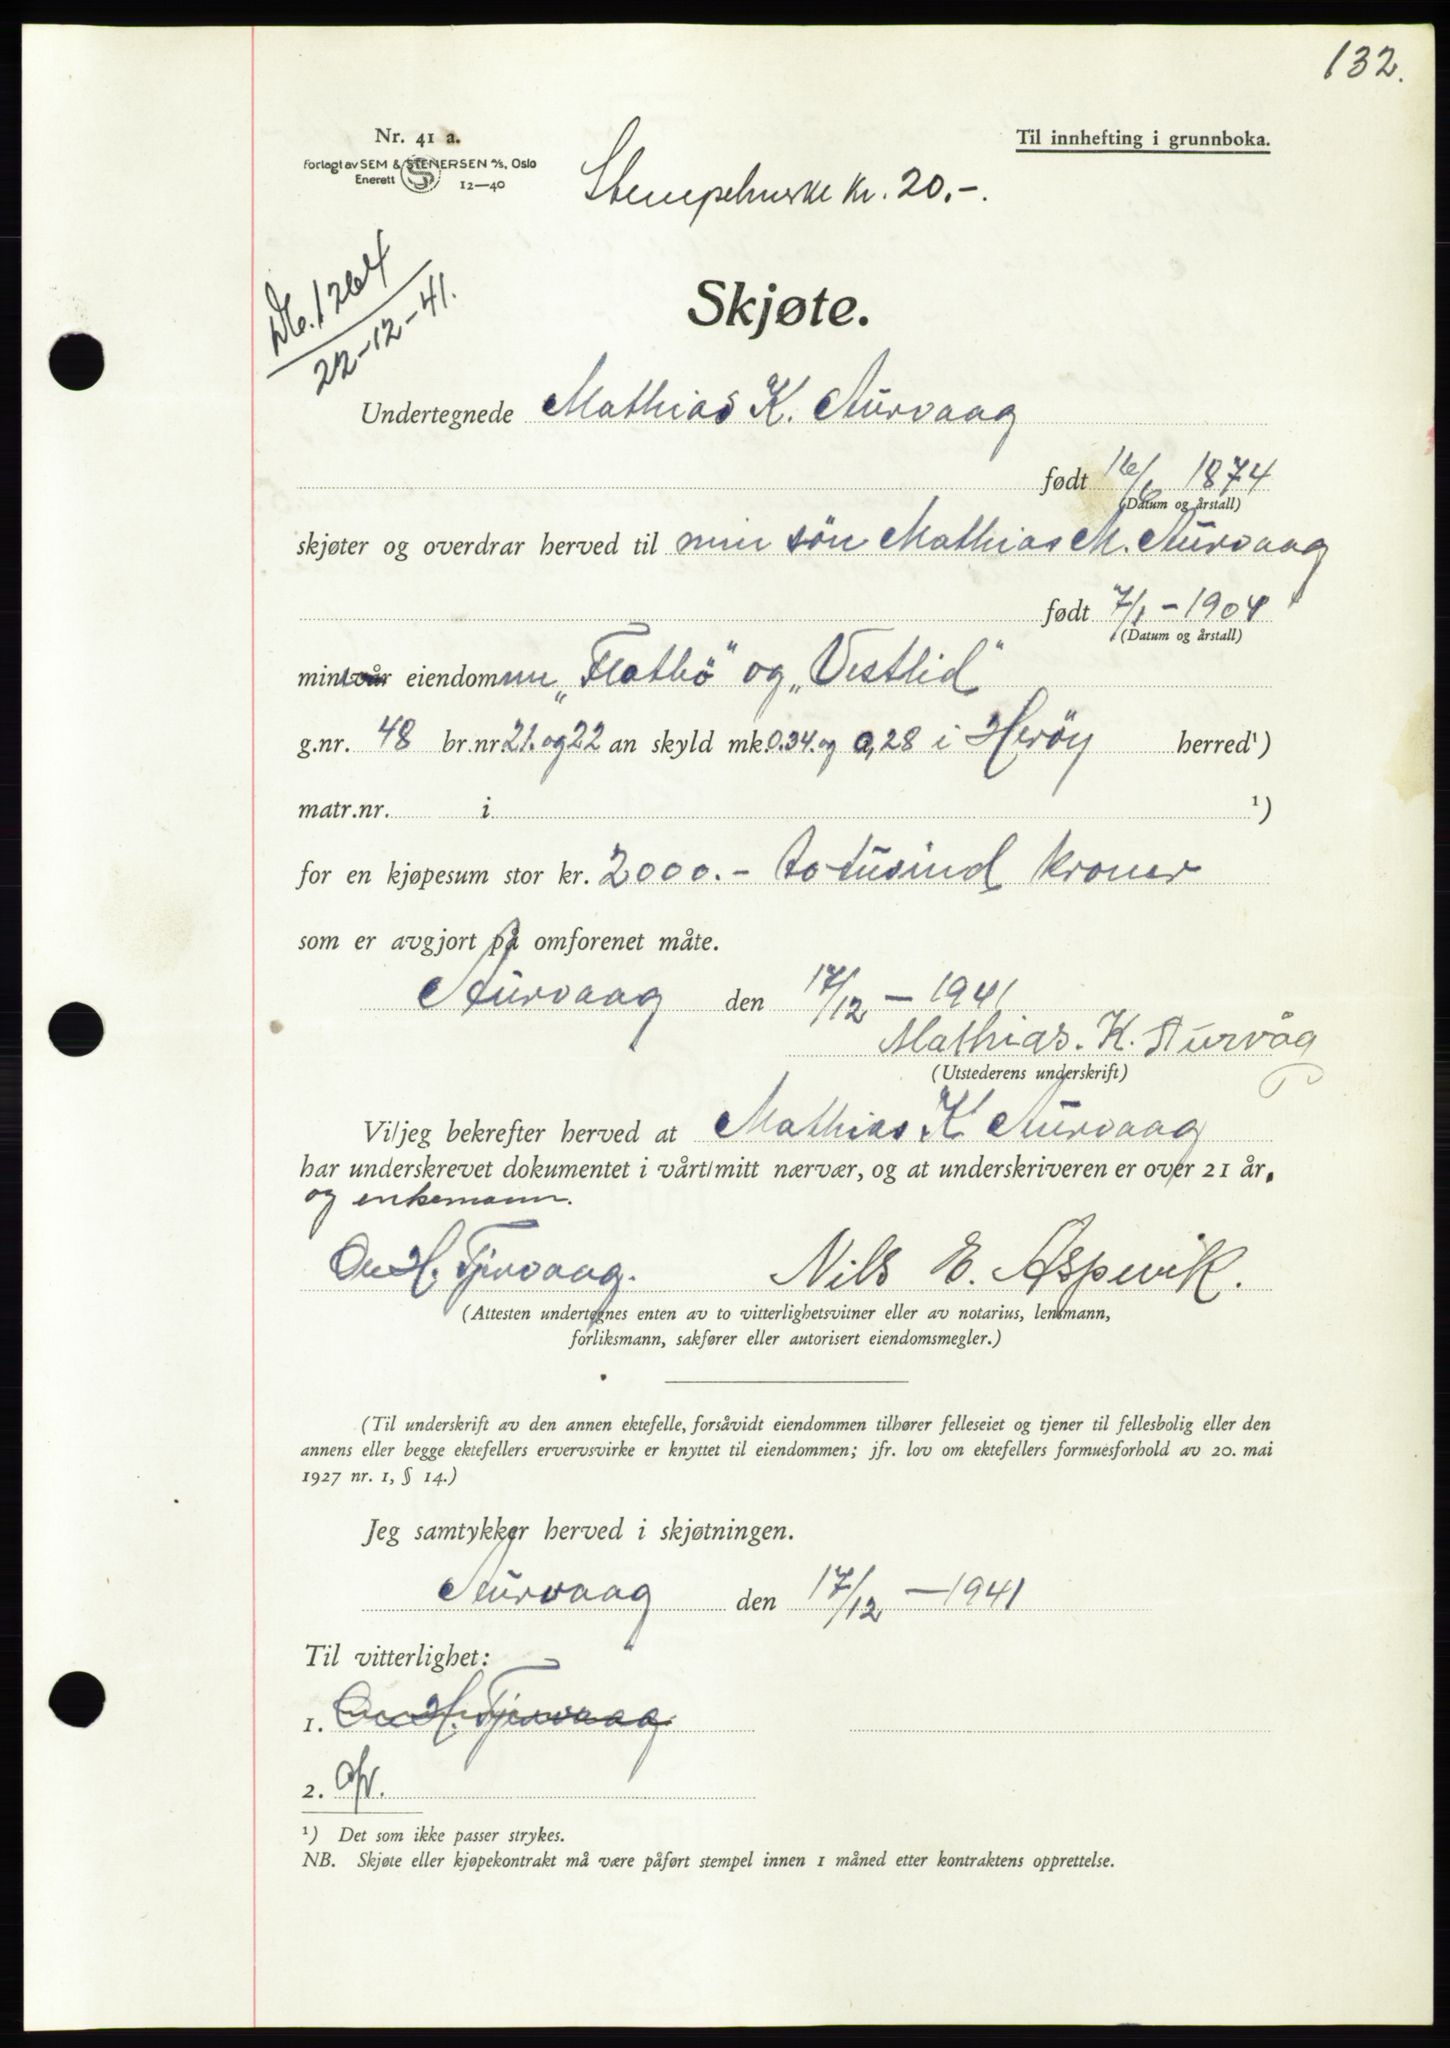 132.
Nr. 41 a.
Til innhefting i grunnboka.
Forlagt av SEM & STENERSEN A/S, Oslo
Enerett 12—40
Stempelmerke kr. 20.-.
Skjøte.
Db. 1264
22-12-41.
Undertegnede Mathias K. Aurvaag
født 16/6 1874
(Datum og årstall)
skjøter og overdrar herved til min sön Mathias M. Aurvaag
født 7/1 - 1904
(Datum og årstall)
min/vår eiendommene „Flatbö" og „Vestlid"
g.nr. 48 br.nr 21. og 22 an skyld mk. 0.34. og 0,28 i Heröy herred¹)
matr.nr. i ¹)
for en kjøpesum stor kr. 2000.- totusind kroner
som er avgjort på omforenet måte.
Aurvaag den 17/12 - 1941
Mathias. K. Aurvåg
(Utstederens underskrift)
Vi/jeg bekrefter herved at Mathias K Aurvaag
har underskrevet dokumentet i vårt/mitt nærvær, og at underskriveren er over 21 år.
og enkemann.
H. Tjervaag. Nils E. Aspevik.
(Attesten undertegnes enten av to vitterlighetsvitner eller av notarius, lensmann,
forliksmann, sakfører eller autorisert eiendomsmegler.)
(Til underskrift av den annen ektefelle, forsåvidt eiendommen tilhører felleseiet og tjener til fellesbolig eller den
annens eller begge ektefellers ervervsvirke er knyttet til eiendommen; jfr. lov om ektefellers formuesforhold av 20. mai
1927 nr. 1, § 14.)
Jeg samtykker herved i skjøtningen.
Aurvaag den 17/12 - 1941
Til vitterlighet:
1. H. Tjervaag
2.
¹) Det som ikke passer strykes.
NB. Skjøte eller kjøpekontrakt må være påført stempel innen 1 måned etter kontraktens opprettelse.